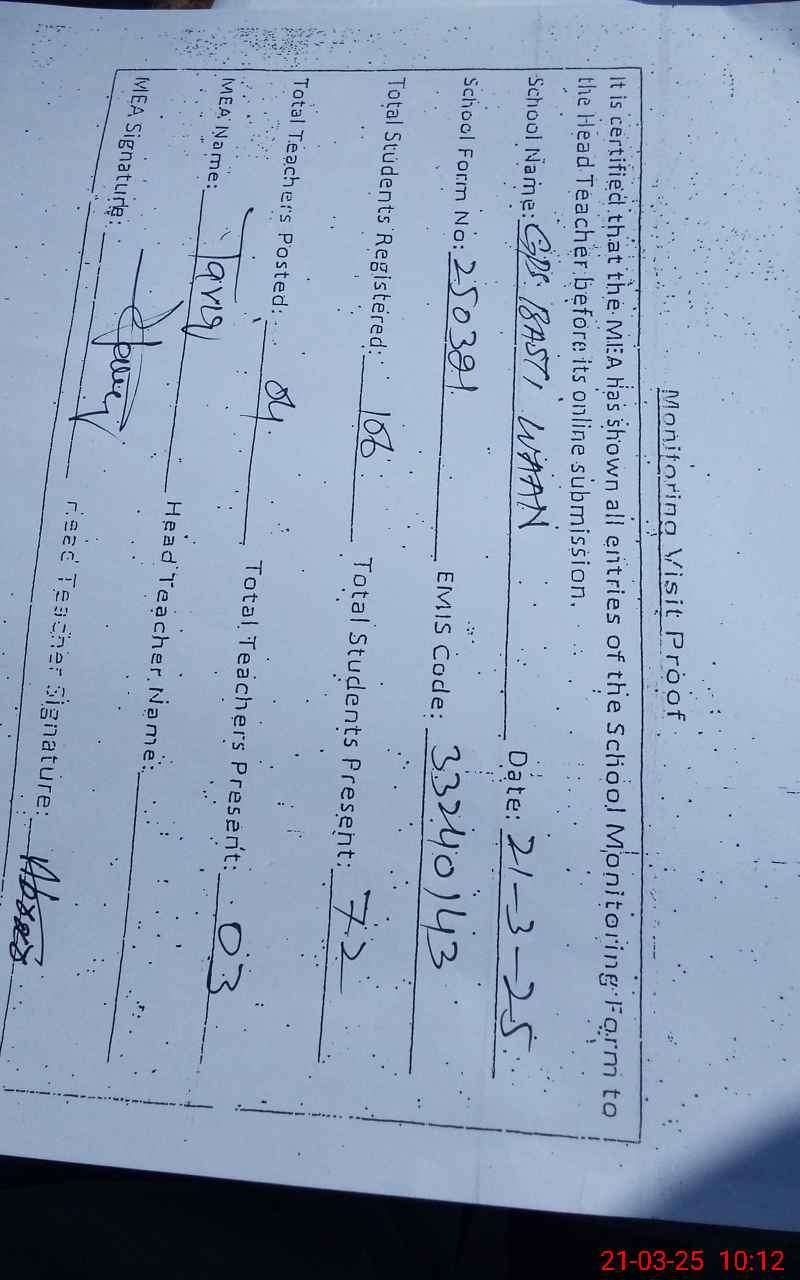 Monitoring Visit Proof
It is certified that the MEA has shown all entries of the School Monitoring Form to
the Head Teacher before its online submission.
School Name: GPS BASTI WAAN Date: 21-3-25
School Form No: 250391 EMIS Code: 33240143
Total Students Registered: 106 Total Students Present: 72
Total Teachers Posted: 04 Total Teachers Present: 03
MEA Name: Tariq Head Teacher Name:
MEA Signature: Head Teacher Signature:
21-03-25 10:12